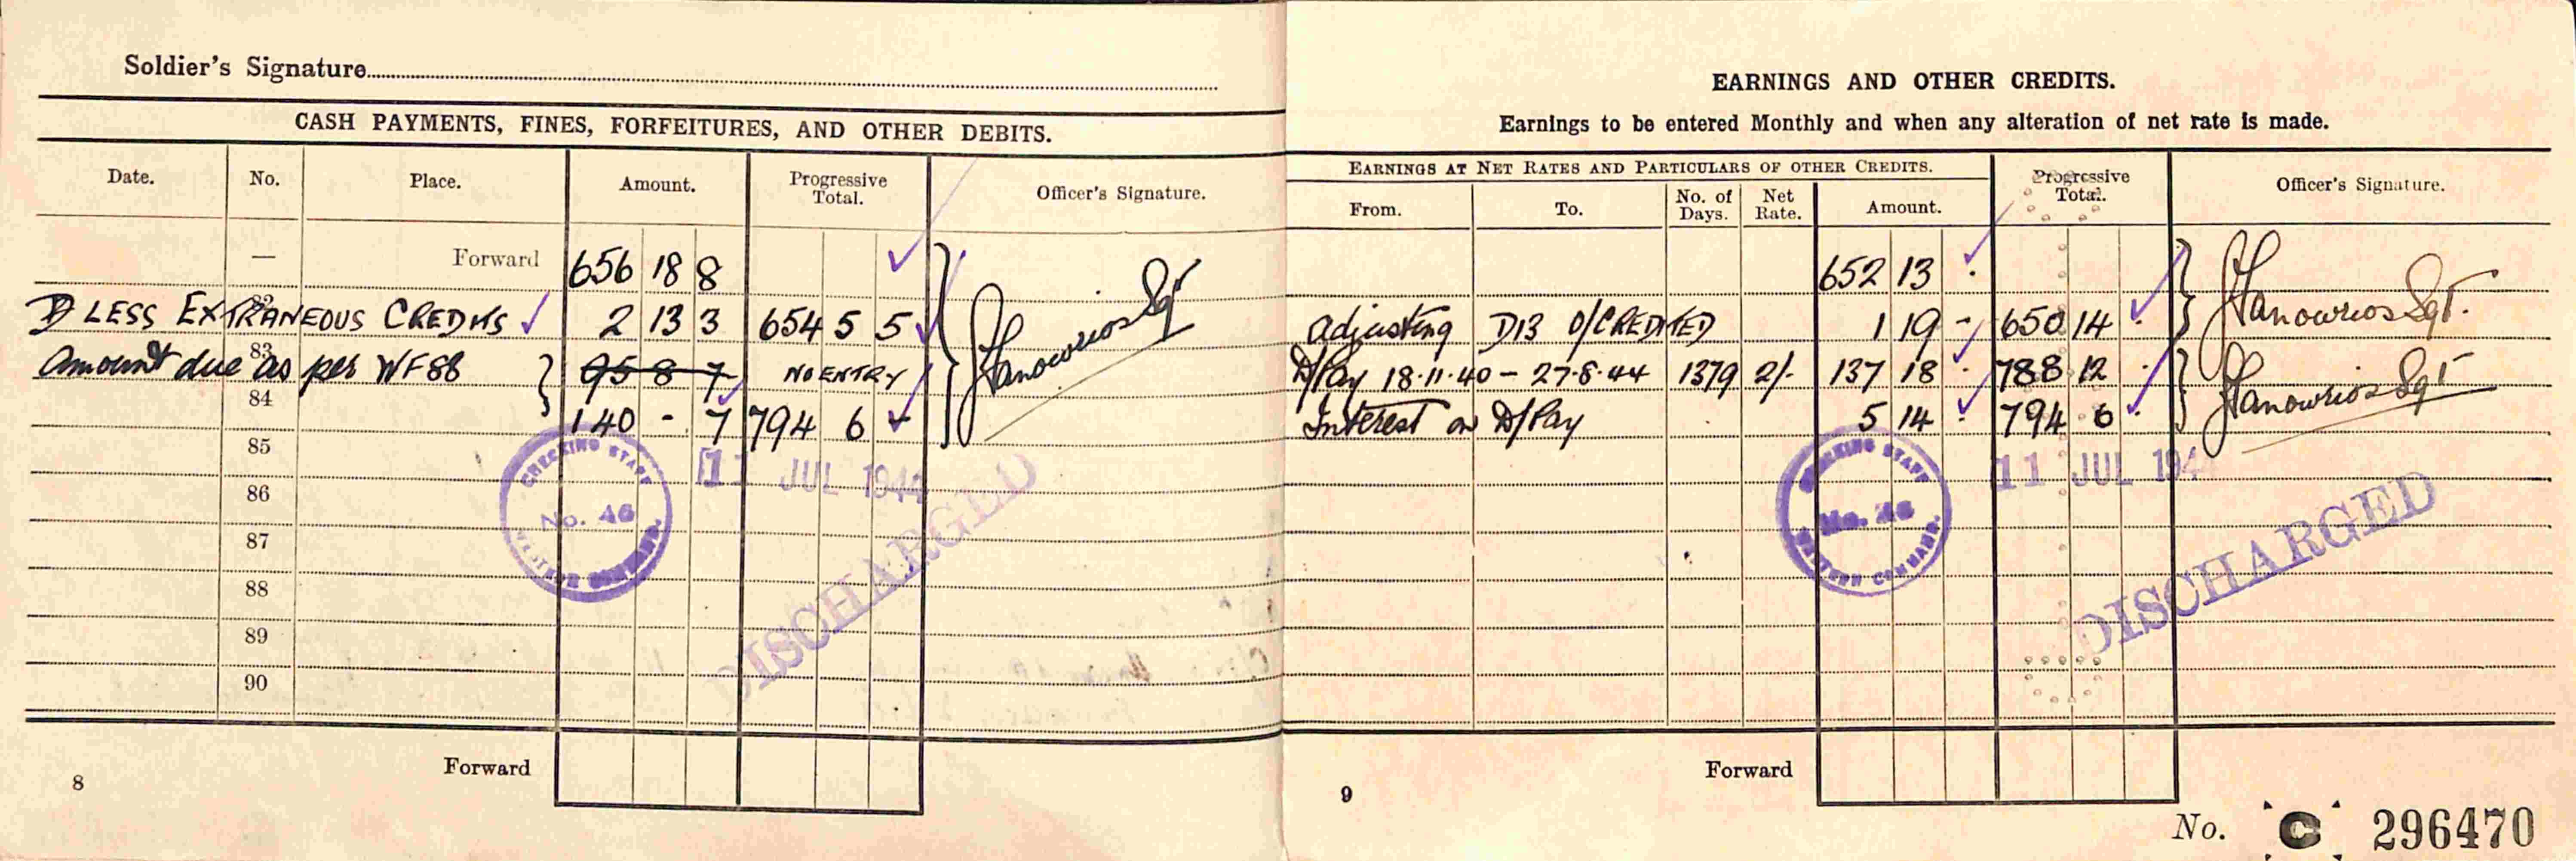 Soldier's Signature
CASH PAYMENTS, FINES, FORFEITURES, AND OTHER DEBITS.
Date. No. Place. Amount. Progressive Total. Officer's Signature.
— Forward 656 18 8
82 LESS EXTRANEOUS CREDITS 2 13 3 654 5 5
83 Amount due as per WF88 95 8 7 NO ENTRY
84 140 - 7 794 6 -
85
86
87
88
89
90
CHECKING STAFF No. 46 COMMAND.
11 JUL 1944
DISCHARGED
Forward
8
EARNINGS AND OTHER CREDITS.
Earnings to be entered Monthly and when any alteration of net rate is made.
EARNINGS AT NET RATES AND PARTICULARS OF OTHER CREDITS. Progressive Total. Officer's Signature.
From. To. No. of Days. Net Rate. Amount.
652 13 .
Adjusting D13 O/CREDITED 1 19 - 650 14 .
D/Pay 18.11.40 - 27.8.44 1379 2/- 137 18 . 788 12 .
Interest on D/Pay 5 14 . 794 6 .
CHECKING STAFF No. 46 COMMAND.
11 JUL 194
DISCHARGED
Forward
9
No. C 296470